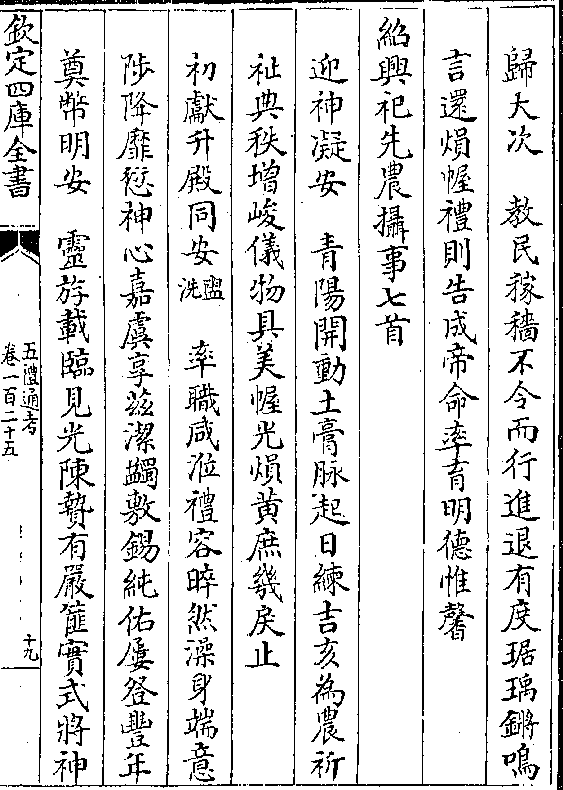 歸大次　教民稼穡不令而行進退有度琚瑀鏘鳴
言還煩幄禮則告成帝命率育明德惟馨
紹興祀先農攝事七首
迎神凝安　青陽開動土膏脉起日練吉亥為農祈
祉典秩增峻儀物具美幄光煩黄庶幾戾止
初獻升殿同安盥洗　率職咸涖禮容睟然澡身端意
陟降靡愆神心嘉虞享兹潔蠲敷錫純佑屢登豐年
奠幣明安　靈斿載臨見光陳贄有嚴篚實式將神
欽定四庫全書
五禮通考
卷一百二十五
十九